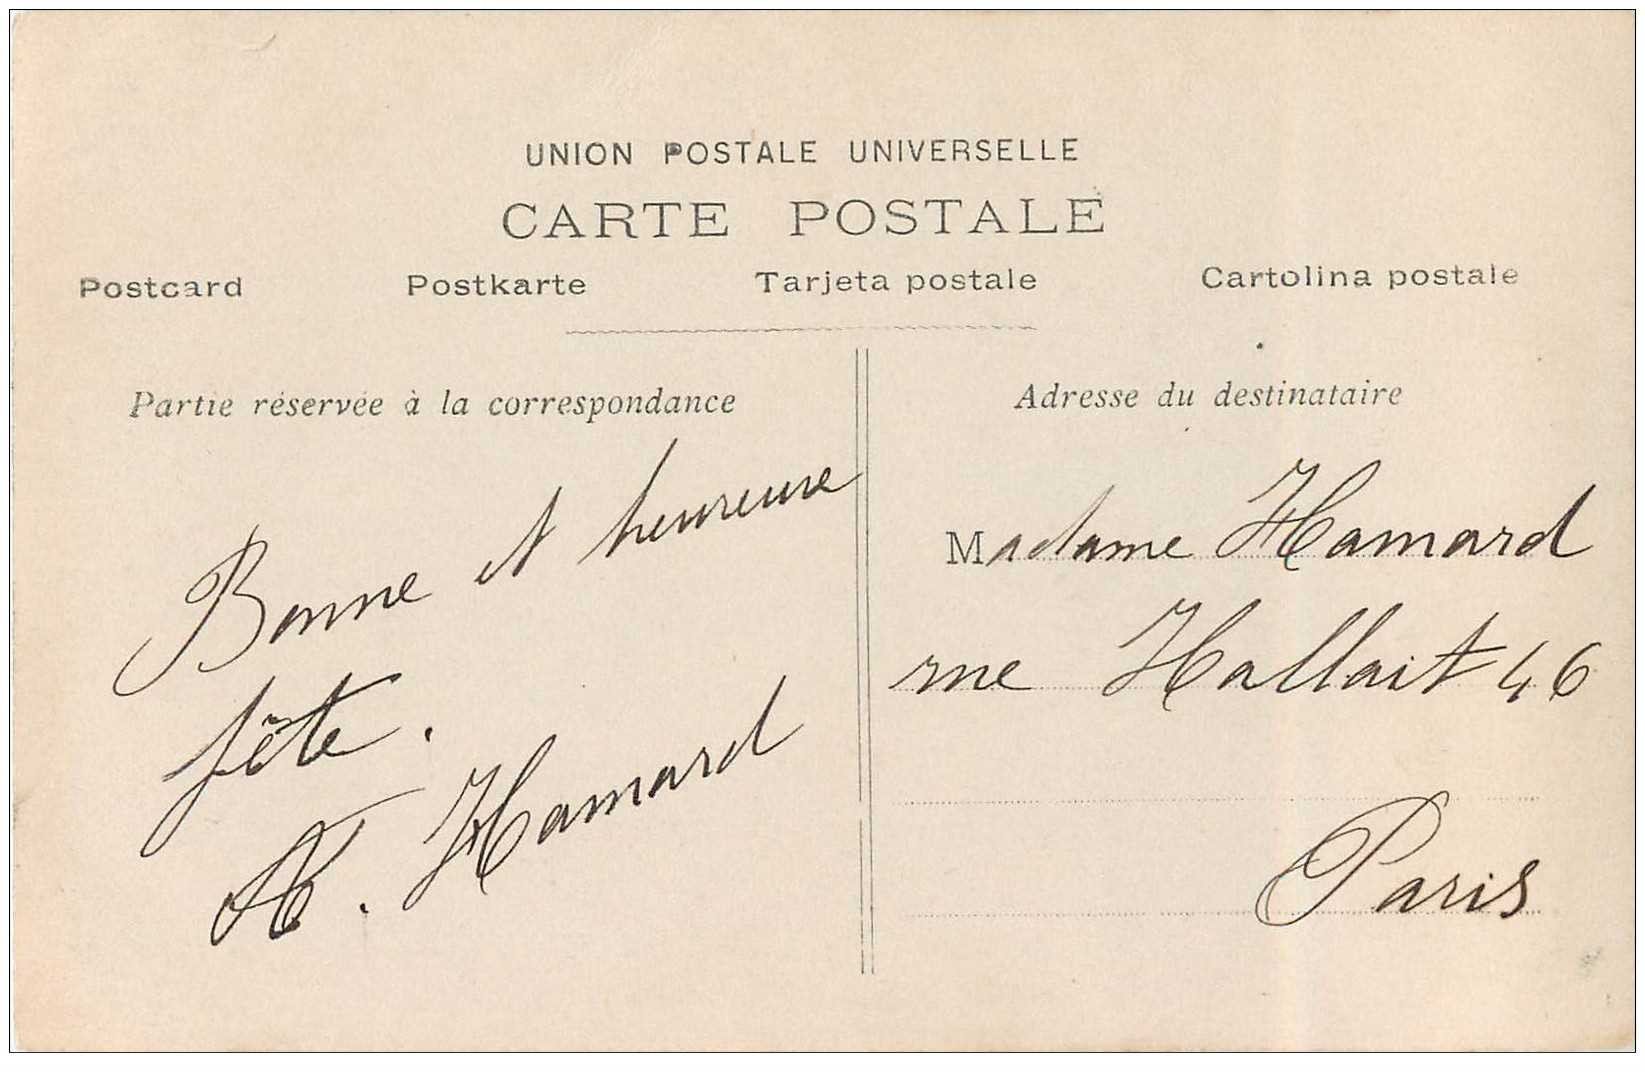 UNION POSTALE UNIVERSELLE
CARTE POSTALE
Postcard Postkarte Tarjeta postale Cartolina postale
Partie réservée à la correspondance
Bonne et heureuse
fête.
Hamard
Adresse du destinataire
Madame Hamard
rue Hallait 46
Paris